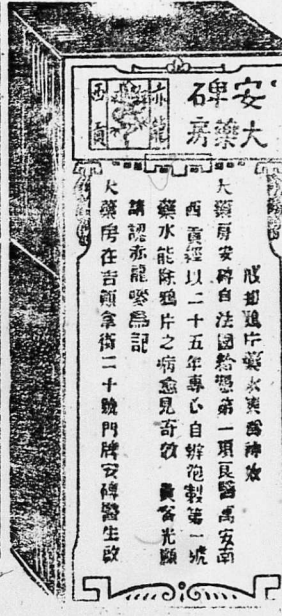 安碑
大藥房
赤龍
西貢
戒却鴉片藥水神效
大藥房安碑自法國給憑第一項良醫寓安南
西貢經以二十五年專心自辦泡製第一號
藥水能除鴉片之病愈見奇效 貴客光顧
請認赤龍嘜爲記
大藥房在吉顛拿街二十號門牌安碑醫生啟